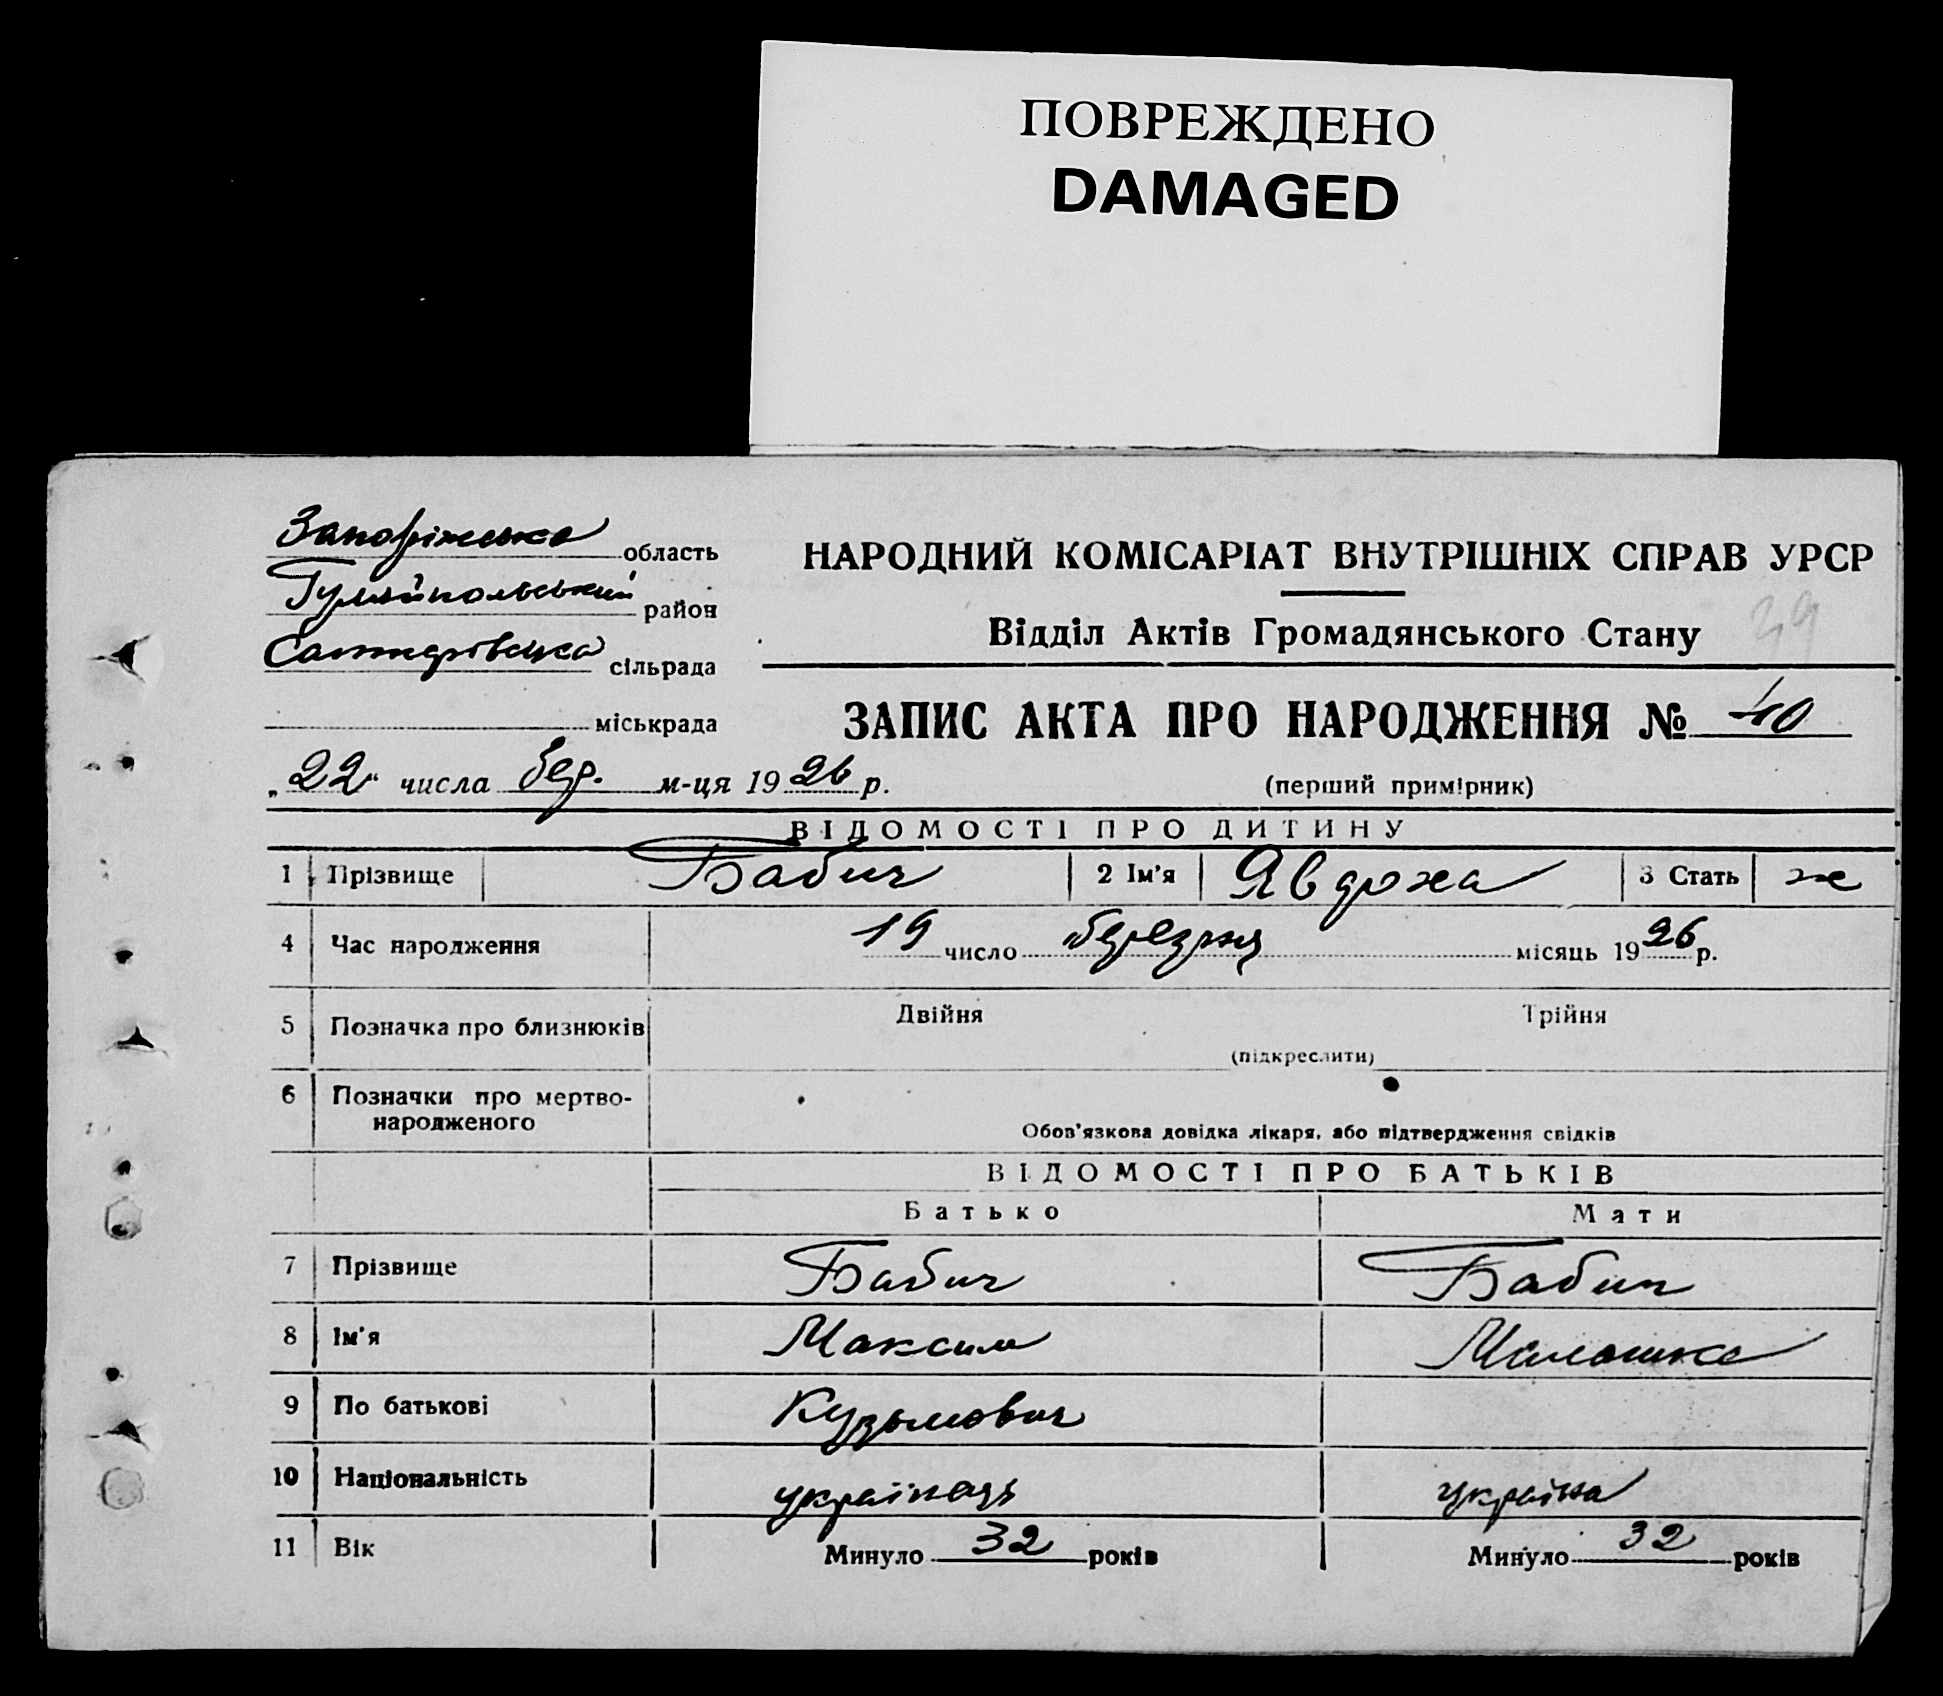 ПОВРЕЖДЕНО
DAMAGED
Запоріжська область
Гуляйпольський район
сільрада
міськрада
„22“ числа бер. м-ця 1926 р.
НАРОДНИЙ КОМІСАРІАТ ВНУТРІШНІХ СПРАВ УРСР
Відділ Актів Громадянського Стану
39
ЗАПИС АКТА ПРО НАРОДЖЕННЯ № 40
(перший примірник)
ВІДОМОСТІ ПРО ДИТИНУ
1 Прізвище Бабич 2 Ім'я Явдоха 3 Стать ж
4 Час народження 19 число березня місяць 1926 р.
5 Позначка про близнюків Двійня Трійня
(підкреслити)
6 Позначки про мертво-
народженого
Обов'язкова довідка лікаря, або підтвердження свідків
ВІДОМОСТІ ПРО БАТЬКІВ
Батько Мати
7 Прізвище Бабич Бабич
8 Ім'я Максим Малашка
9 По батькові Кузьмович
10 Національність українець україна
11 Вік Минуло 32 років Минуло 32 років